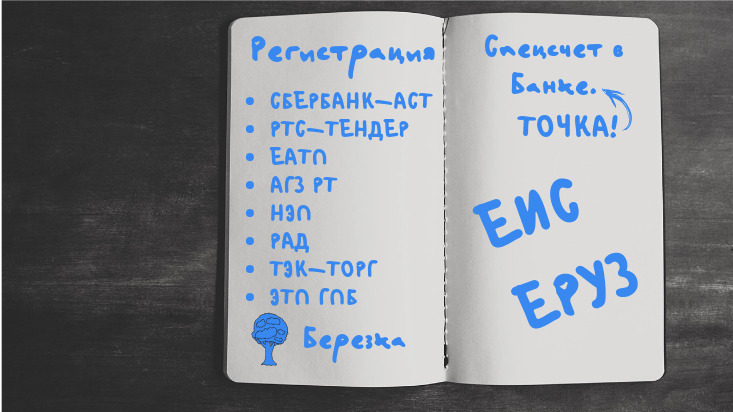 Регистрация
• СБЕРБАНК—АСТ
• РТС—ТЕНДЕР
• ЕАТП
• АГЗ РТ
• НЭП
• РАД
• ТЭК—ТОРГ
• ЭТП ГПБ
Березка
Спецсчет в
Банке.
ТОЧКА!
ЕИС
ЕРУЗ